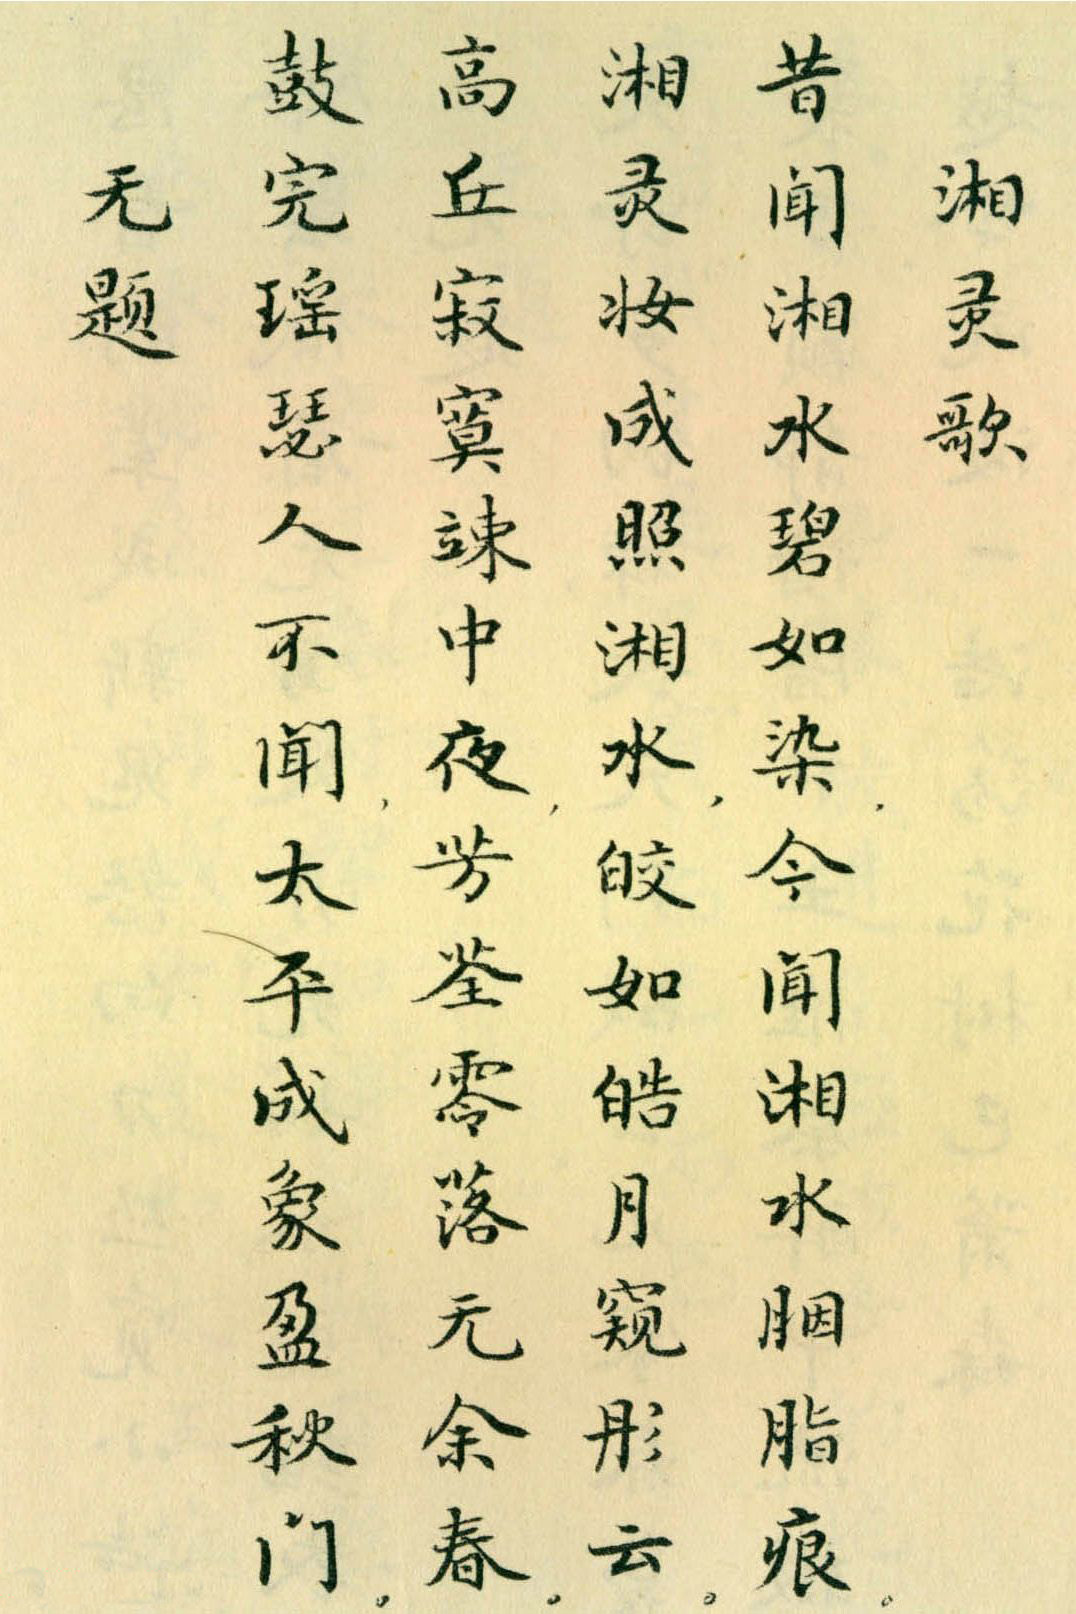 湘灵歌
昔闻湘水碧如染,今闻湘水胭脂痕。
湘灵妆成照湘水,皎如皓月窥彤云。
高丘寂寞竦中夜,芳荃零落无余春。
鼓完瑶瑟人不闻,太平成象盈秋门。
无题